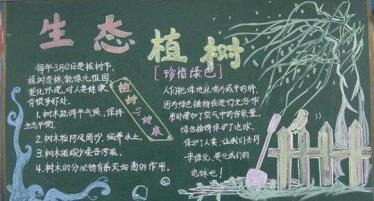 生态
植树
[珍惜绿色]
每年3月12日是植树节,
植树造林,能绿化祖国,
美化环境,对人类健康
有很多好处。
1.树木能调节气候,保持
生态平衡。
2.树木能防风固沙,涵养水土。
3.树木能减少噪音污染。
4.树木的分泌物有杀灭细菌的作用。
植树与健康
人们把绿地比喻为城市的肺,
因为绿色植物在进行光合作
用时增加了空气中的含氧量,
绿色植物保护了地球,
保护了人类,让我们共同
来绿化、美化我们的
地球吧!